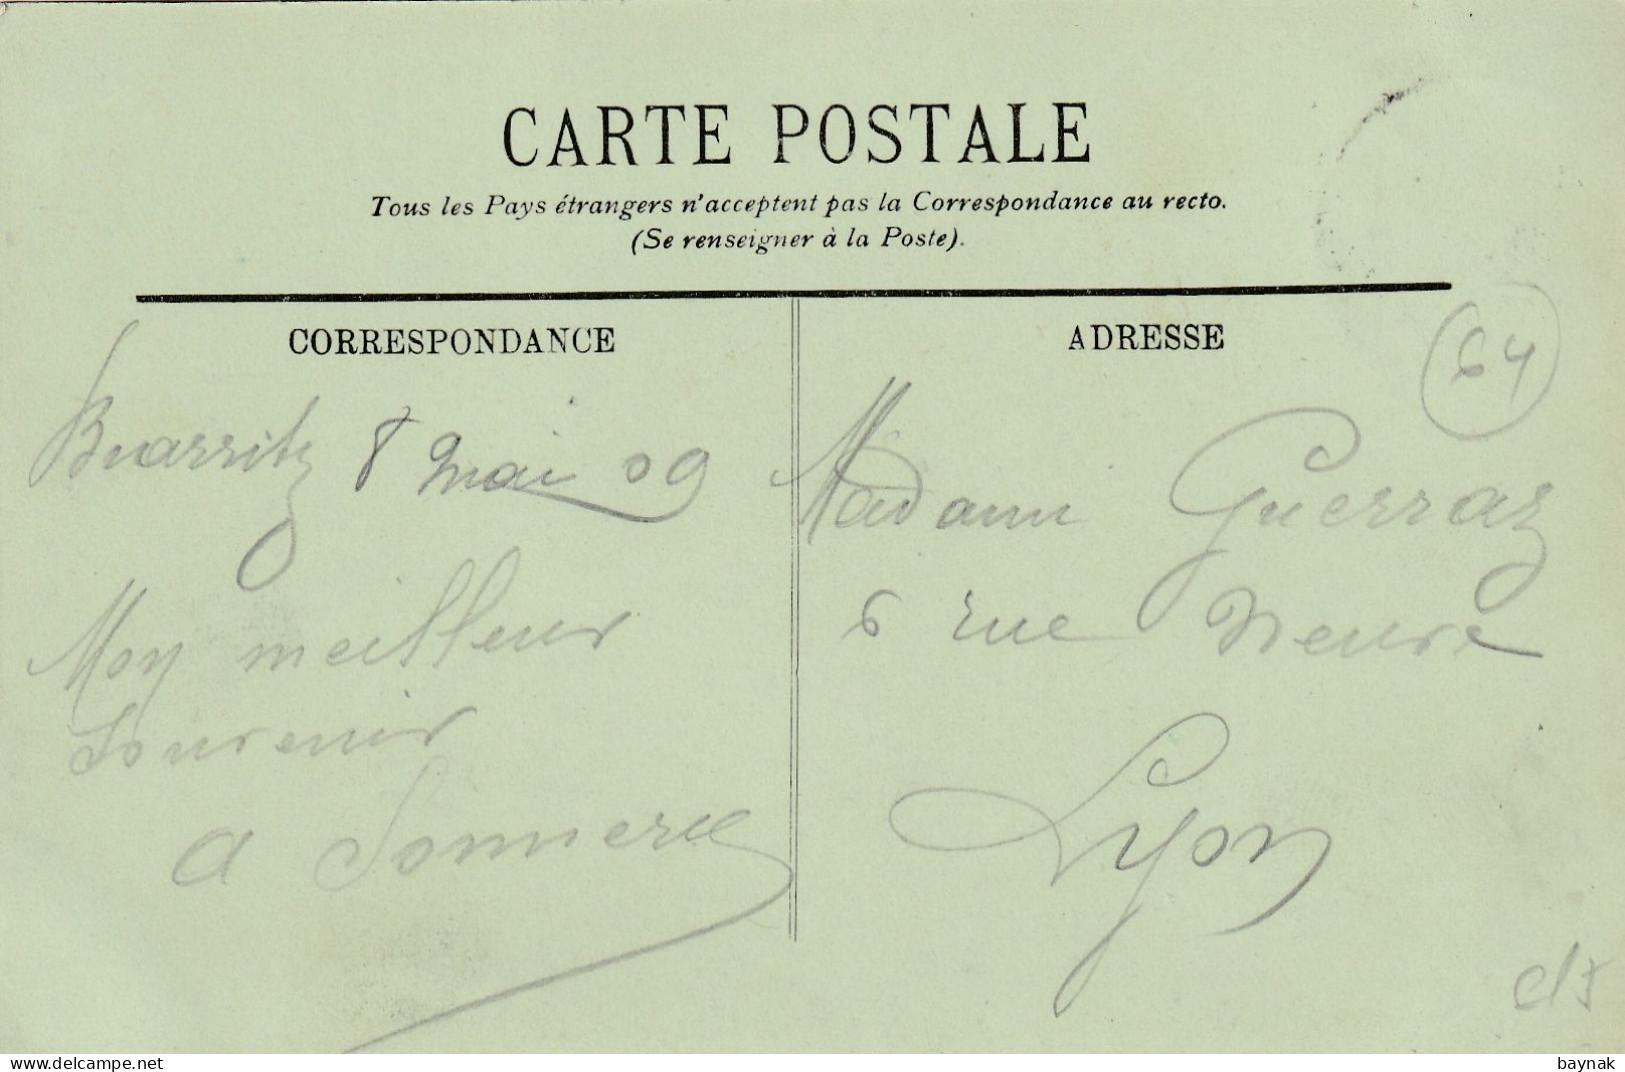 CARTE POSTALE
Tous les Pays étrangers n'acceptent pas la Correspondance au recto.
(Se renseigner à la Poste).
CORRESPONDANCE
ADRESSE
64
Biarritz 8 mai 09
Mon meilleur
souvenir
A
Madame Guerraz
6 rue Neuve
Lyon
the-world-collectors.com
baynak